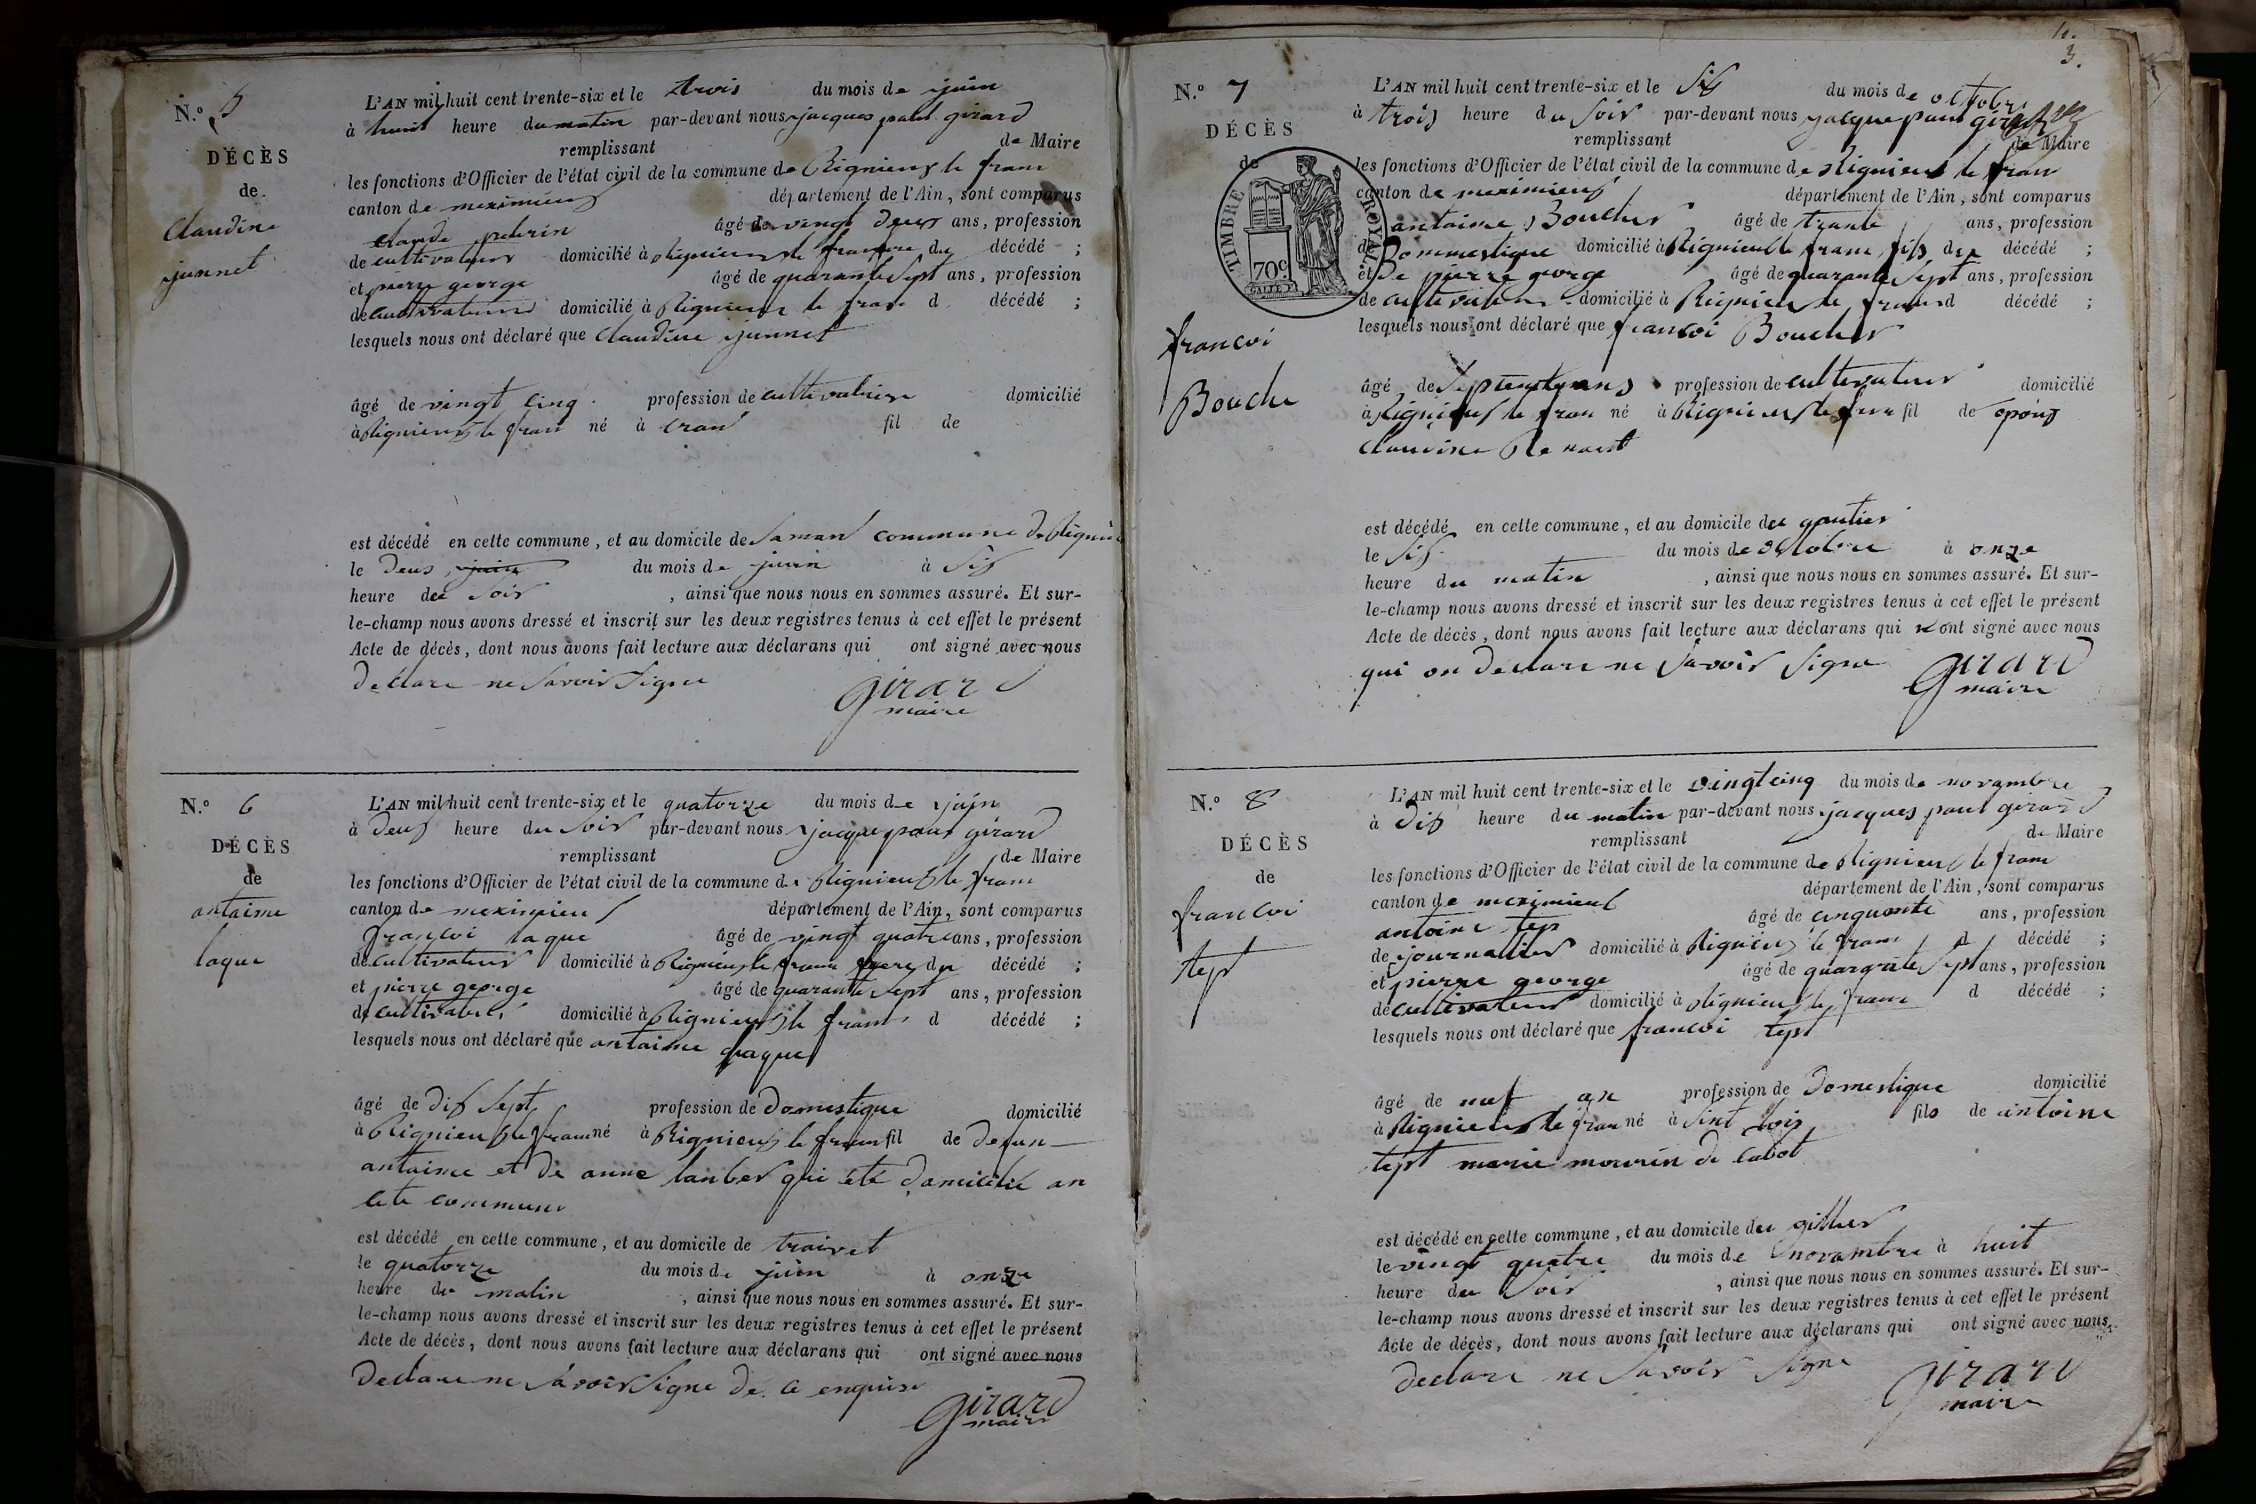 N.º 5
DÉCÈS
de
Claudine
junnet
L'AN mil huit cent trente-six et le trois du mois de juin
à huit heure du matin par-devant nous jacques paul girard
remplissant de Maire
les fonctions d'Officier de l'état civil de la commune de Rignieux le fran
canton de meximieux département de l'Ain, sont comparus
claude âgé de vingt deux ans, profession
de cultivateur domicilié à Rignieux le fran du décédé ;
et pierre george âgé de quarante sept ans, profession
de cultivateur domicilié à Rignieux le fran d décédé ;
lesquels nous ont déclaré que Claudine junnet
âgé de vingt cinq profession de cultivatrise domicilié
à Rignieux le fran né à cran fil de
est décédé en cette commune, et au domicile de Saman commune de Rignieu
le deux juin du mois de juin à six
heure du soir , ainsi que nous nous en sommes assuré. Et sur-
le-champ nous avons dressé et inscrit sur les deux registres tenus à cet effet le présent
Acte de décès, dont nous avons fait lecture aux déclarans qui ont signé avec nous
declare ne savoir signe
girard
maire
N.º 6
DÉCÈS
de
antoime
laque
L'AN mil huit cent trente-six et le quatorze du mois de juin
à deux heure du soir par-devant nous jacque paul girard
remplissant de Maire
les fonctions d'Officier de l'état civil de la commune de Rignieux le fran
canton de meximieux département de l'Ain, sont comparus
francoi laque âgé de vingt quatre ans, profession
de cultivateur domicilié à Rignieux le fran frere du décédé ;
et pierre george âgé de quarante sept ans, profession
de cultivateur domicilié à Rignieux le fran d décédé ;
lesquels nous ont déclaré que antoime laque
âgé de dix sept profession de domestique domicilié
à Rignieux le fran né à Rignieux le fran fil de defun
antoime et de anne lanber qui été domicilié an
cete commune
est décédé en cette commune, et au domicile de trairet
le quatorze du mois de juin à onze
heure du matin , ainsi que nous nous en sommes assuré. Et sur-
le-champ nous avons dressé et inscrit sur les deux registres tenus à cet effet le présent
Acte de décès, dont nous avons fait lecture aux déclarans qui ont signé avec nous
declare ne savoir signe de ce enquise
girard
maire
3.
N.º 7
DÉCÈS
de
TIMBRE ROYAL
70c
francoi
Bouche
L'AN mil huit cent trente-six et le six du mois de octobre
à trois heure du soir par-devant nous jacque paul girard
remplissant de Maire
les fonctions d'Officier de l'état civil de la commune de Rignieux le fran
canton de meximieux département de l'Ain, sont comparus
antoime Boucher âgé de trante ans, profession
de Dommestique domicilié à Rignieux le fran fils du décédé ;
et de pierre george âgé de quarante sept ans, profession
de cultivateur domicilié à Rignieux le fran d décédé ;
lesquels nous ont déclaré que francoi Boucher
âgé de ans profession de cultivateur domicilié
à Rignieux le fran né à Rignieux le fran fil de epoux
claudine Renaut
est décédé en cette commune, et au domicile du gautier
le six du mois de octobre à onze
heure du matin , ainsi que nous nous en sommes assuré. Et sur-
le-champ nous avons dressé et inscrit sur les deux registres tenus à cet effet le présent
Acte de décès, dont nous avons fait lecture aux déclarans qui n ont signé avec nous
qui on declare ne savoir signe
girard
maire
N.º 8
DÉCÈS
de
francoi
tept
L'AN mil huit cent trente-six et le vingt cinq du mois de novambre
à dix heure du matin par-devant nous jacques paul girard
remplissant de Maire
les fonctions d'Officier de l'état civil de la commune de Rignieux le fran
canton de meximieux département de l'Ain, sont comparus
antoine tep âgé de cinquante ans, profession
de journalier domicilié à Rignieux le fran d décédé ;
et pierre george âgé de quarante sept ans, profession
de cultivateur domicilié à Rignieux le fran d décédé ;
lesquels nous ont déclaré que francoi tept
âgé de neuf an profession de Domestique domicilié
à Rignieux le fran né à Sint lois fils de antoine
tept marie mourin de cabot
est décédé en cette commune, et au domicile du gillier
le vingt quatre du mois de novambre à huit
heure du soir , ainsi que nous nous en sommes assuré. Et sur-
le-champ nous avons dressé et inscrit sur les deux registres tenus à cet effet le présent
Acte de décès, dont nous avons fait lecture aux déclarans qui ont signé avec nous
declare ne savoir signe
girard
maire